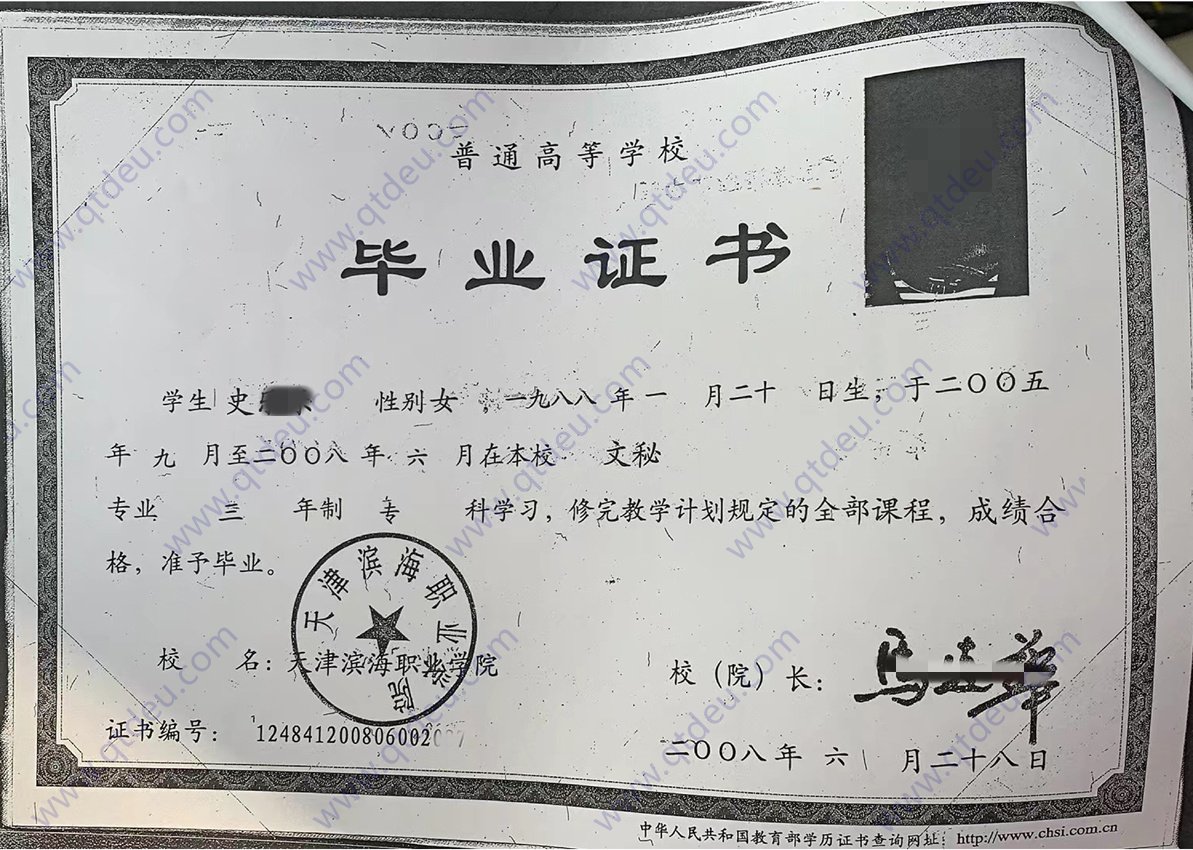 普通高等学校
毕业证书
学生 史 性别 女 ，一九八八 年 一 月二十 日生，于二〇〇五
年 九 月至二〇〇八 年 六 月在本校 文秘
专业 三 年制 专 科学习，修完教学计划规定的全部课程，成绩合
格，准予毕业。
天津滨海职业学院
校 名：天津滨海职业学院
校（院）长：
证书编号： 124841200806002
二〇〇八年 六 月二十八日
中华人民共和国教育部学历证书查询网址：http://www.chsi.com.cn
www.qtdeu.com